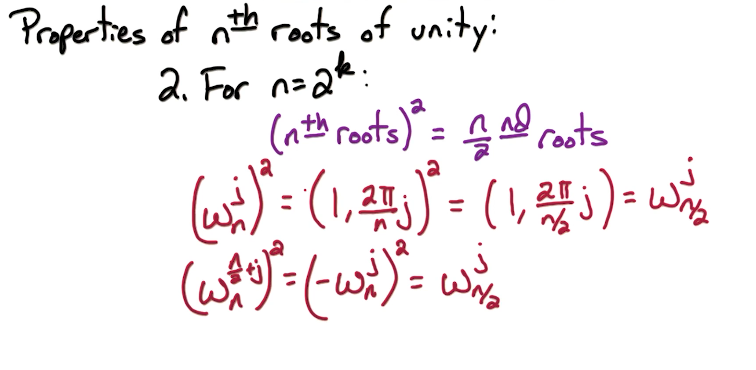 Properties of n^th roots of unity:
2. For n=2^k:
(n^th roots)^2 = n/2 nd roots
(ω_n^j)^2 = (1, 2π/n j)^2 = (1, 2π/(n/2) j) = ω_{n/2}^j
(ω_n^{n/2+j})^2 = (-ω_n^j)^2 = ω_{n/2}^j